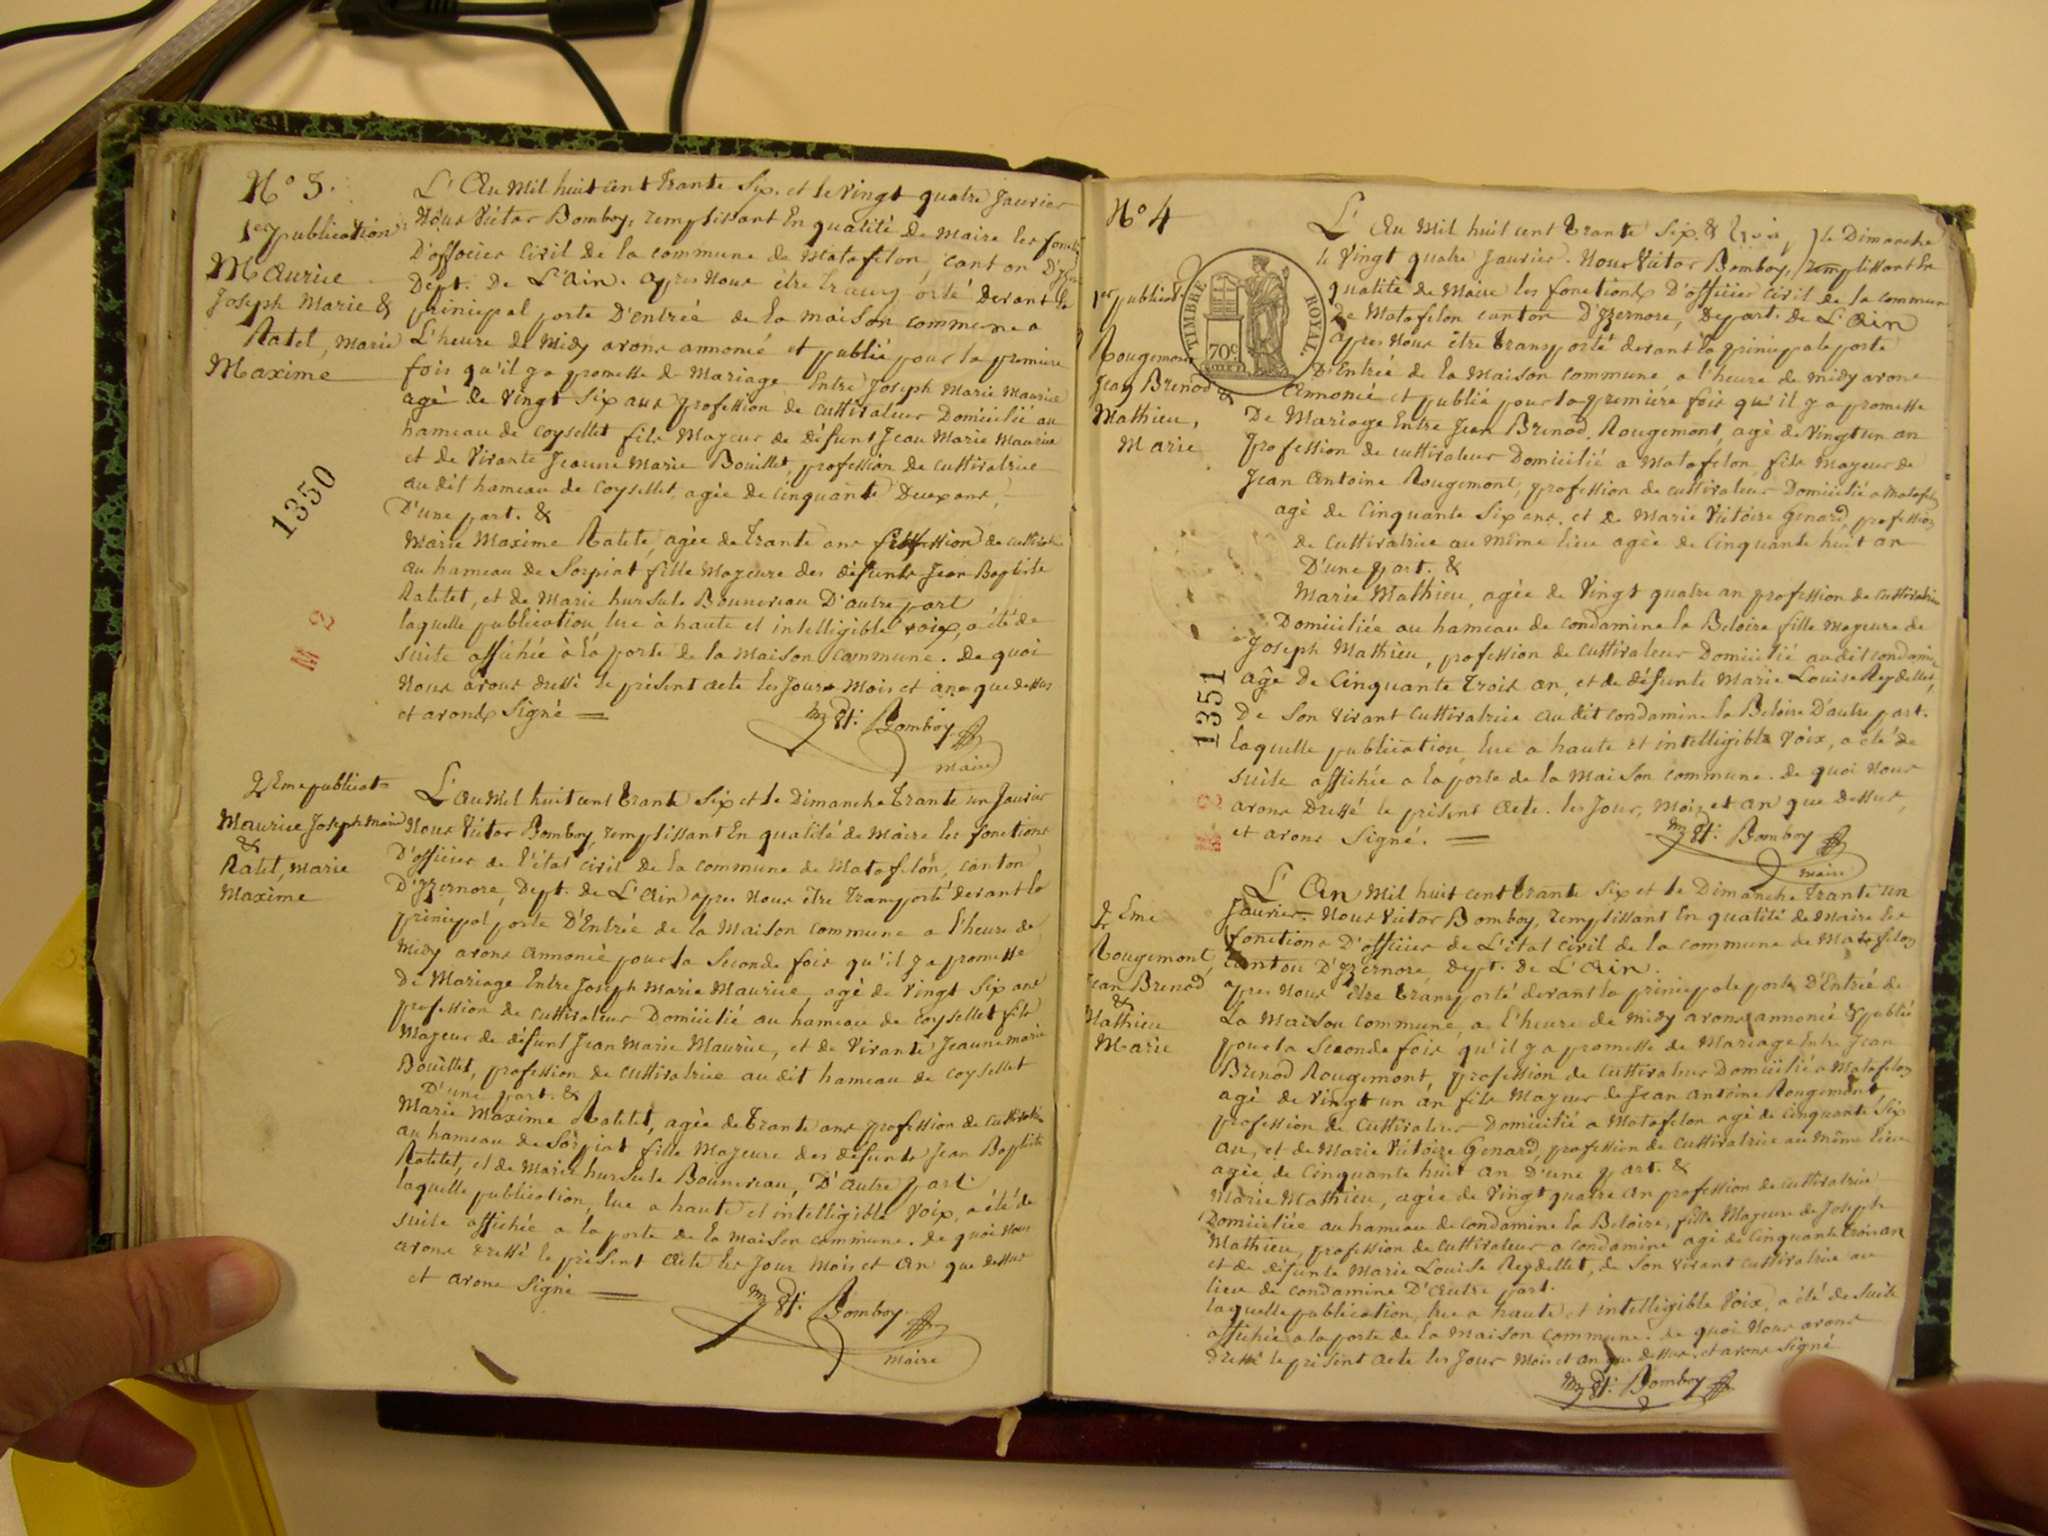 N° 3.
1ere publication
Maurice
Joseph Marie &
Ratel, Marie
Maxime
1350
M 2
L'An Mil huit cent trante Six. et le vingt quatre Janvier
Nous Victor Bomboy, remplissant En qualité de Maire les fonct
D'officier Civil de la commune de Matafelon, canton D'Iz
Dept. de L'Ain. apres nous être transporté devant la
principal porte D'entrée de la maison commune a
L'heure de Midy avons annoncé et publié pour la premiere
fois qu'il y a promesse de Mariage Entre Joseph Marie Maurice
agé de Vingt Six ans profession de cultivateur Domicilié au
hameau de coysellet fils Majeur de défunt Jean Marie Maurice
et de Vivante Jeanne Marie Bouillet, profession de cultivatrice
au dit hameau de coysellet, agée de cinquante Deux ans,
D'une part. &
Marie Maxime Ratelt, agée de trante ans profession de cultivatrice
au hameau de Sorpiat fille Majeure des défunts Jean Baptiste
Ratelet, et de Marie hursule Bounereau D'autre part
laquelle publication lue à haute et intelligible voix, a été de
suite affichée à la porte de la Maison commune. de quoi
Nous avons dressé le présent acte les Jours Mois et ans que dessus
et avons Signé
Bomboy
maire
2 Eme publicat
Maurice Joseph Marie
&
Ratel, Marie
Maxime
L'an Mil huit cent trante Six et le Dimanche trante un Janvier
Nous Victor Bomboy, remplissant En qualité de Maire les fonctions
D'officier de l'état civil de la commune de Matafelon, canton
D'Izernore, Dept. de L'Ain apres nous être transporté devant la
principal porte D'Entrée de la Maison commune a l'heure de
Midy avons annoncé pour la Seconde fois qu'il y a promesse
de Mariage Entre Joseph Marie Maurice, agé de Vingt Six ans
profession de cultivateur Domicilié au hameau de coysellet fils
Majeur de défunt Jean Marie Maurice, et de Vivante Jeanne marie
Bouillet, profession de cultivatrice au dit hameau de coysellet
D'une part. &
Marie Maxime Ratelet, agée de trante ans profession de cultivatrice
au hameau de Sorpiat fille Majeure des défunts Jean Baptiste
Ratelet, et de Marie hursule Bounereau, D'autre part.
laquelle publication, lue a haute et intelligible voix, a été de
suite affichée a la porte de la maison commune. de quoi Nous
avons dressé le présent acte les Jour Mois et an que dessus
et avons Signé
Bomboy
maire
N° 4
1er publicat
Rougemont
Jean Brenod &
Mathieu,
Marie
TIMBRE ROYAL.
70c.
1351
M 2
L'An Mil huit cent trante Six. & le Dimanche
le Vingt quatre Janvier. Nous Victor Bomboy, remplissant En
qualité de Maire les fonctions D'officier civil de la commune
de Matafelon canton D'Izernore, Depart. de L'Ain
apres nous être transporté devant la principale porte
D'Entrée de la Maison commune a l'heure de midy avons
annoncé et publié pour la premiere fois qu'il y a promesse
De Mariage Entre Jean Brenod. Rougemont, agé de Vingt un an
profession de cultivateur Domicilié a Matafelon fils majeur de
Jean Antoine Rougemont, profession de cultivateur Domicilié a Matafelon
agé de Cinquante Six ans. et de Marie Victoire Genard, profession
de cultivatrice au même lieu agée de cinquante huit an
D'une part. &
Marie Mathieu, agée de Vingt quatre an profession de cultivatrice
Domiciliée au hameau de condamine la Beloire fille majeure de
Joseph Mathieu, profession de cultivateur Domicilié au dit condamine
âgé de Cinquante trois an, et de défunte Marie Louise Reydellet,
De Son vivant cultivatrice au dit condamine la Beloire D'autre part.
laquelle publication, lue a haute et intelligible Voix, a été de
suite affichée a la porte de la maison commune. de quoi Nous
avons dressé le présent acte. les Jour, mois et an que dessus,
et avons Signé.
Bomboy
maire
2 Eme
Rougemont,
Jean Brenod
&
Mathieu
Marie
L'An Mil huit cent trante Six et le Dimanche trante un
Janvier. Nous Victor Bomboy, remplissant En qualité de Maire les
fonctions D'officier de L'état civil de la commune de Matafelon
canton D'Izernore, dept. de L'Ain.
apres nous être transporté devant la principale porte D'Entrée de
La Maison commune, a l'heure de midy avons annoncé & publié
pour la Seconde fois qu'il y a promesse de Mariage Entre Jean
Brenod Rougemont, profession de cultivateur Domicilié a Matafelon
agé de Vingt un an fils Majeur de Jean Antoine Rougemont,
profession de cultivateur Domicilié a Matafelon agé de cinquante Six
an, et de Marie Victoire Genard, profession de cultivatrice au même lieu
agée de Cinquante huit an D'une part. &
Marie Mathieu, agée de Vingt quatre an profession de cultivatrice
Domiciliée au hameau de condamine la Beloire, fille Majeure de Joseph
Mathieu, profession de cultivateur a condamine agé de cinquante trois an
et de défunte Marie Louise Reydellet, de Son vivant cultivatrice au
lieu de condamine D'autre part.
laquelle publication, lue a haute et intelligible Voix, a été de suite
affichée a la porte de la Maison commune. de quoi Nous avons
dressé le présent acte les Jour Mois et an que dessus. et avons signé
Bomboy